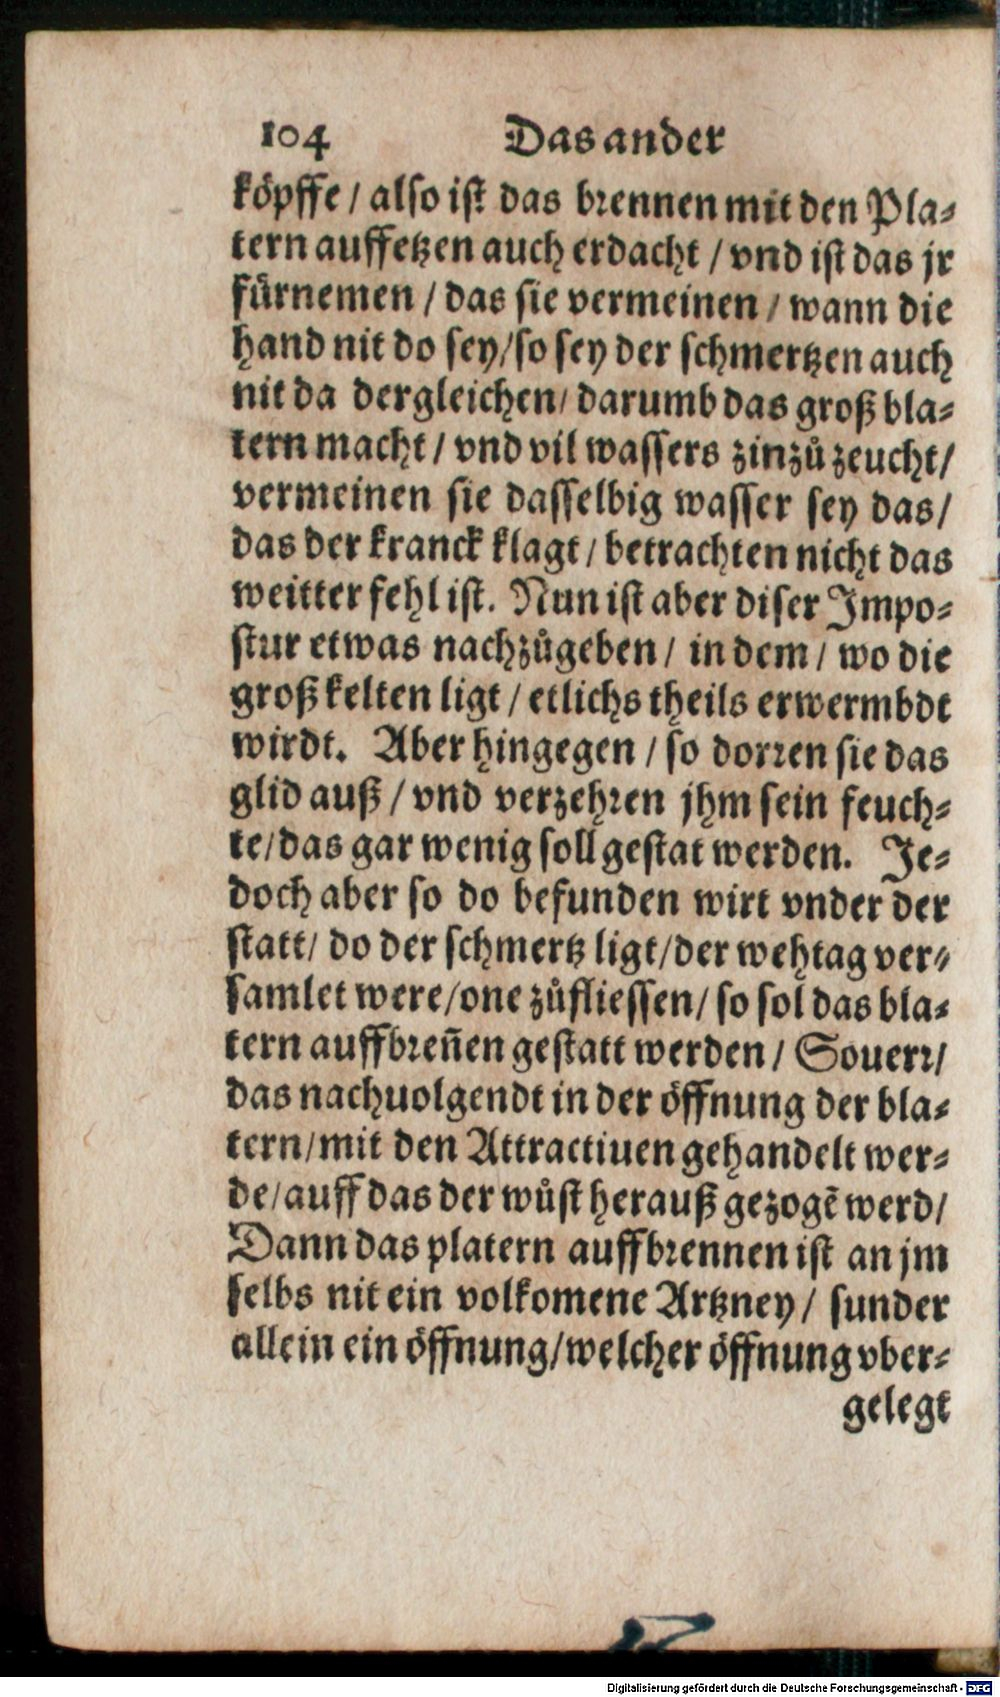 104 Das ander
köpffe / also ist das brennen mit den Pla-
tern auffetzen auch erdacht / vnd ist das jr
fürnemen / das sie vermeinen / wann die
hand nit do sey / so sey der schmertzen auch
nit da dergleichen / darumb das groß bla-
tern macht / vnd vil wassers zinzů zeucht /
vermeinen sie dasselbig wasser sey das /
das der kranck klagt / betrachten nicht das
weitter fehl ist. Nun ist aber diser Impo-
stur etwas nachzůgeben / in dem / wo die
groß kelten ligt / etlichs theils erwermbdt
wirdt. Aber hingegen / so dorren sie das
glid auß / vnd verzehren jhm sein feuch-
te / das gar wenig soll gestat werden. Je-
doch aber so do befunden wirt vnder der
statt / do der schmertz ligt / der wehtag ver-
samlet were / one zůfliessen / so sol das bla-
tern auffbreñen gestatt werden / Souerr /
das nachuolgendt in der öffnung der bla-
tern / mit den Attractiuen gehandelt wer-
de / auff das der wůst herauß gezogẽ werd /
Dann das platern auffbrennen ist an jm
selbs nit ein volkomene Artzney / sunder
allein ein öffnung / welcher öffnung vber-
gelegt
Digitalisierung gefördert durch die Deutsche Forschungsgemeinschaft - DFG